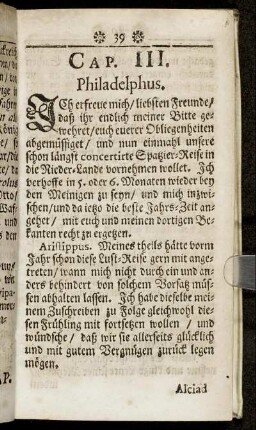 ❋ 39 ❋
CAP. III.
Philadelphus.
ICh erfreue mich/ liebsten Freunde/
daß ihr endlich meiner Bitte ge-
wehret/ euch euerer Obliegenheiten
abgemüssiget/ und nun einmahl unsere
schon längst concertirte Spatzier-Reise in
die Nieder-Lande vornehmen wollet. Ich
verhoffe in 5. oder 6. Monaten wieder bey
den Meinigen zu seyn/ und mich inzwi-
schen/ und da ietzo die beste Jahrs-Zeit an-
gehet/ mit euch und meinen dortigen Be-
kanten recht zu ergetzen.
Aristippus. Meines theils hätte vorm
Jahr schon diese Lust-Reise gern mit ange-
tretten/ wann mich nicht durch ein und an-
ders behindert von solchem Vorsatz müs-
sen abhalten lassen. Ich habe dieselbe mei-
nem Zuschreiben zu Folge gleichwohl die-
sen Frühling mit fortsetzen wollen / und
wündsche/ daß wir sie allerseits glücklich
und mit gutem Vergnügen zurück legen
mögen.
Alciad